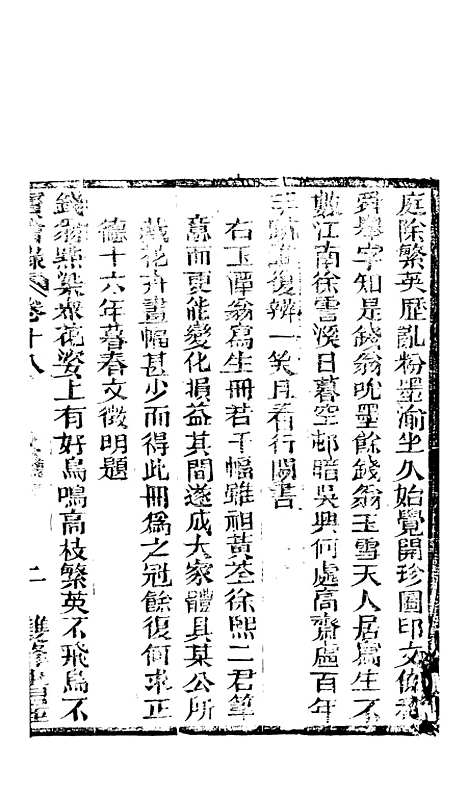 庭除繁英歷亂粉墨渝坐久始覺開珍圖印文
舜舉字知是錢翁吮墨餘錢翁玉雪天人居寫生不
數江南徐霅溪日暮空邨暗吳興何處高齋虛百年
手跡誰復辨一笑且看行間書
右玉潭翁寫生冊若干幅雖祖黃荃徐熙二君筆
意而更能變化損益其間遂成大家體具某公所
藏花卉畫幅甚少而得此冊爲之冠餘復何求正
德十六年暮春文徵明題
錢翁點染衆花姿上有好鳥鳴高枝繁英不飛鳥不
寶繪錄 卷十八 二